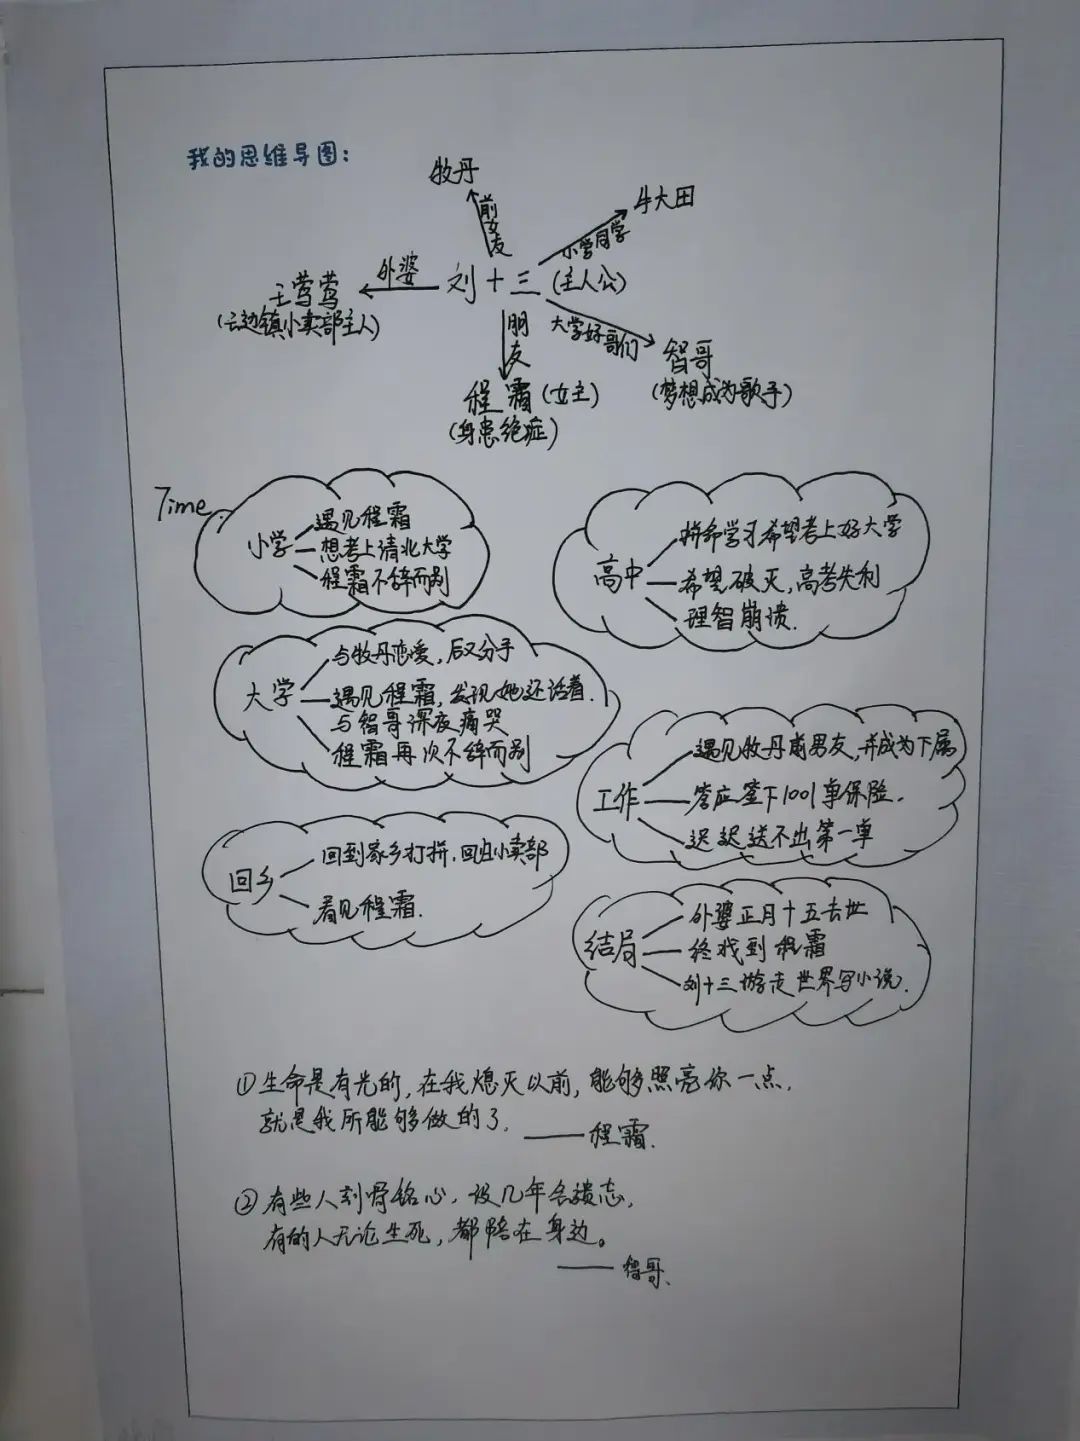 我的思维导图：
牧丹
前女友
牛大田
小学同学
王莺莺
外婆
刘十三
(主人公)
(云边镇小卖部主人)
朋友
大学好哥们
智哥
(梦想成为歌手)
程霜(女主)
(身患绝症)
Time
小学
遇见程霜
想考上清北大学
程霜不辞而别
高中
拼命学习希望考上好大学
希望破灭,高考失利
理智崩溃.
大学
与牧丹恋爱,后又分手
遇见程霜,发现她还活着.
与智哥深夜痛哭
程霜再次不辞而别
工作
遇见牧丹前男友,并成为下属
答应签下1001单保险.
迟迟送不出第一单
回乡
回到家乡打拼.回由小卖部
看见程霜.
结局
外婆正月十五去世
终找到程霜
刘十三游走世界写小说.
①生命是有光的,在我熄灭以前,能够照亮你一点,
就是我所能够做的了.
——程霜.
②有些人刻骨铭心,没几年会遗忘,
有的人无论生死,都陪在身边。
——智哥.